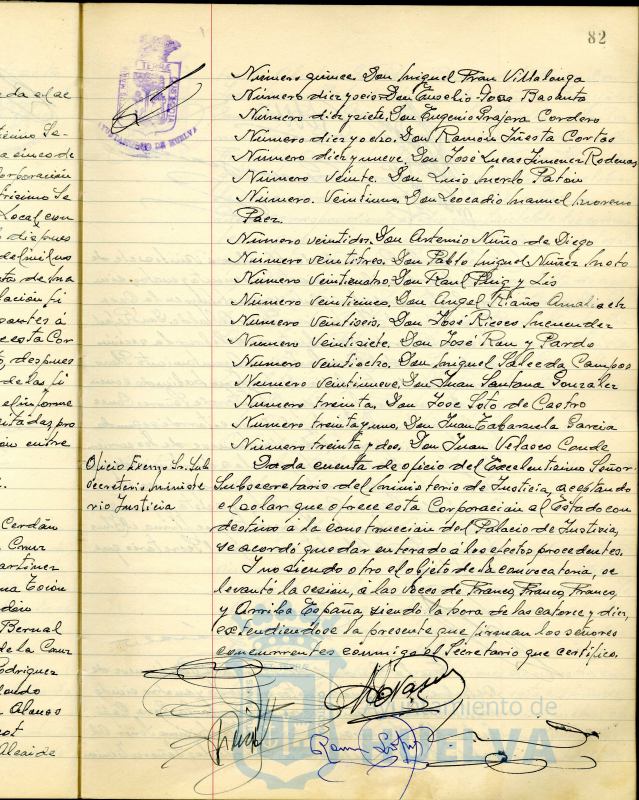 82
Número quince. Don Miguel Frau Villalonga
Número diez y seis. Don Eusebio Basanta
Número diez y siete. Don Eugenio Prajera Cordero
Número diez y ocho. Don Ramón Iñesta Cortas
Número diez y nueve. Don José Lucas Jimenez Rodenas
Número veinte. Don Luis Merlo Patón
Número. Veintiuno. Don Leocadio Manuel Moreno
Paez.
Número veintidos. Don Antonio Nuño de Diego
Número veintitres. Don Pablo Miguel Nuñez Moto
Número veinticuatro. Don Raul Puig y Lis
Número veinticinco. Don Angel Riaño
Número veintiseis. Don José Riesco Menendez
Número veintisiete. Don José Rau y Pardo
Número veintiocho. Don Miguel Salceda Campos
Número veintinueve. Don Juan Santana Gonzalez
Número treinta. Don José Soto de Castro
Número treinta y uno. Don Juan Tabaruela Garcia
Número treinta y dos. Don Juan Velasco Conde
Oficio Excmo Sr. Sub
secretario ministe
rio Justicia
Dada cuenta de oficio del Excelentisimo Señor
Subsecretario del Ministerio de Justicia, aceptando
el solar que ofrece esta Corporación al Estado con
destino a la construccion del Palacio de Justicia,
se acordó quedar enterado a los efectos procedentes.
Y no siendo otro el objeto de la convocatoria, se
levantó la sesión, a las voces de Franco, Franco, Franco,
y Arriba España, siendo la hora de las catorce y diez,
extendiendose la presente que firman los señores
concurrentes conmigo el Secretario que certifico.
AYUNTAMIENTO DE HUELVA
Ayuntamiento de
HUELVA
da el ac
a cinco de
Corporación
Local, con
despues
de
lación
antes á
e esta Cor
, despues
de las
el informe
ón entre
Cerdán
Cruz
artinez
Bernal
de la Cruz
Rodriguez
Alonso
Alcaide